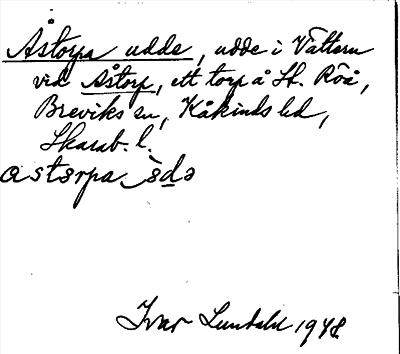 Åstorpa udde, udde i Vättern
vid Åstorp, ett torp å St. Röå,
Breviks sn, Kåkinds hd,
Skarab. l.
åstərpa
Ivar Lundahl 1948.